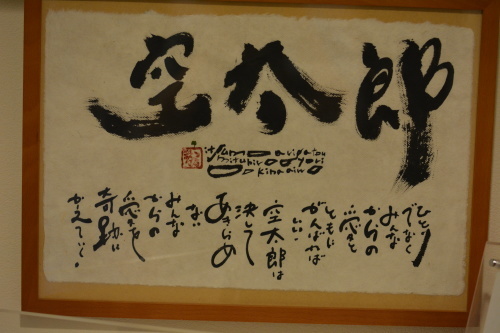 空太郎
itsumo arigatou
ひとり
でなく
みんな
からの
愛と
ともに
がんばれば
いい
空太郎は
決して
あきらめ
ない
みんな
からの
愛を
奇跡に
かえていく。